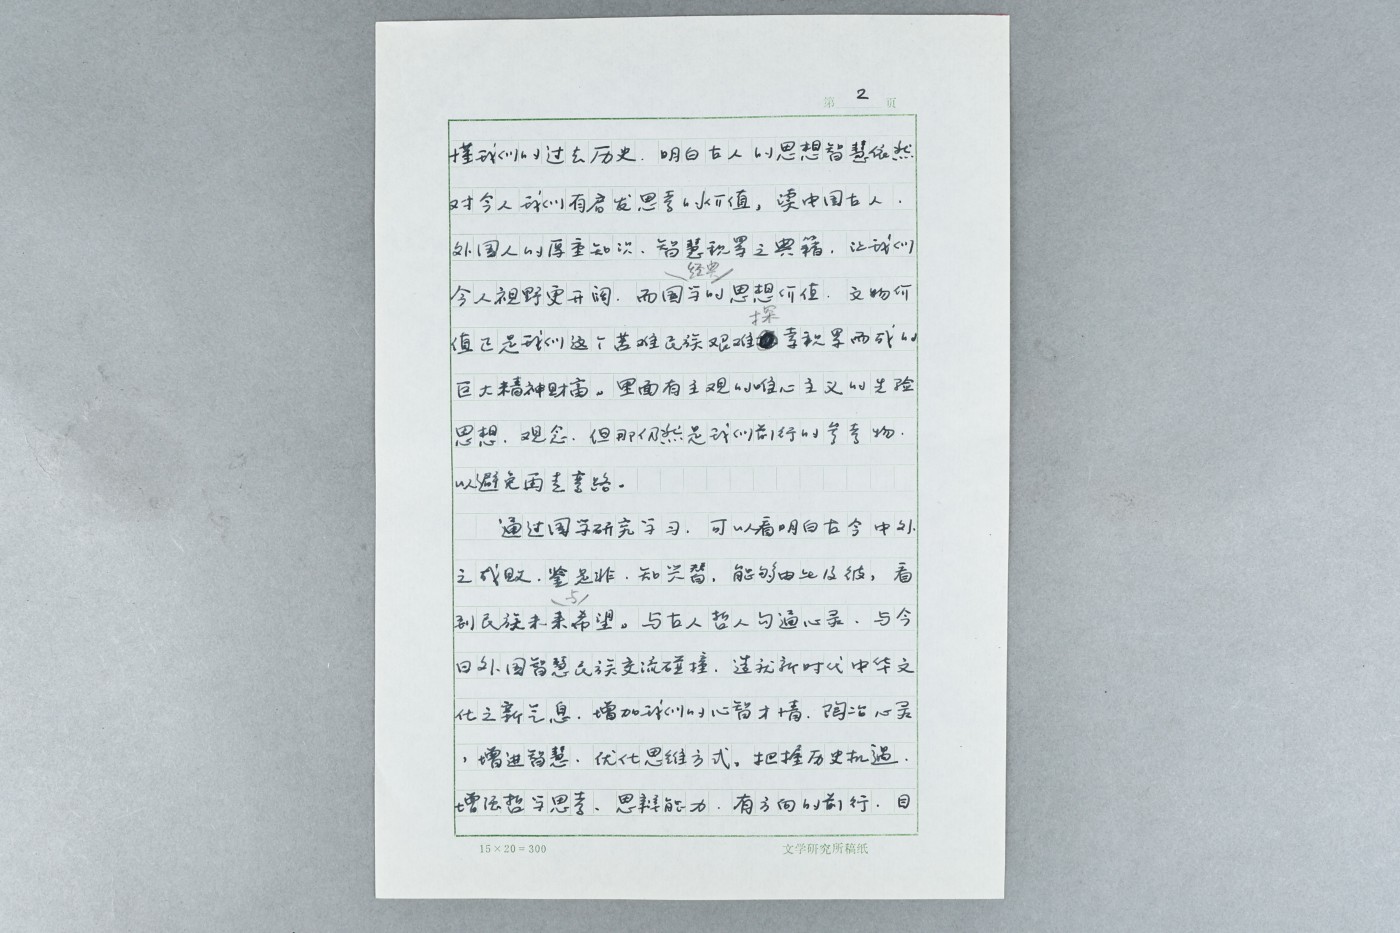 第 2 页
懂我们的过去历史，明白古人的思想智慧依然
对今人我们有启发思考的价值，读中国古人，
外国人的厚重知识，智慧积累之典籍，让我们
经典
今人视野更开阔，而国学的思想价值，文物价
探
值正是我们这个苦难民族艰难索积累而成的
巨大精神财富。里面有主观的唯心主义的先验
思想，观念，但那仍然是我们前行的参考物，
以避免再走弯路。
通过国学研究学习，可以看明白古今中外
之成败，鉴是非，知兴替，能够由此及彼，看
与
到民族未来希望。与古人哲人勾通心灵，与今
日外国智慧民族交流碰撞，造就新时代中华文
化之新气息，增加我们的心智才情，陶冶心灵
，增进智慧，优化思维方式。把握历史机遇，
增强哲学思考、思辩能力，有方向的前行，目
15×20=300
文学研究所稿纸